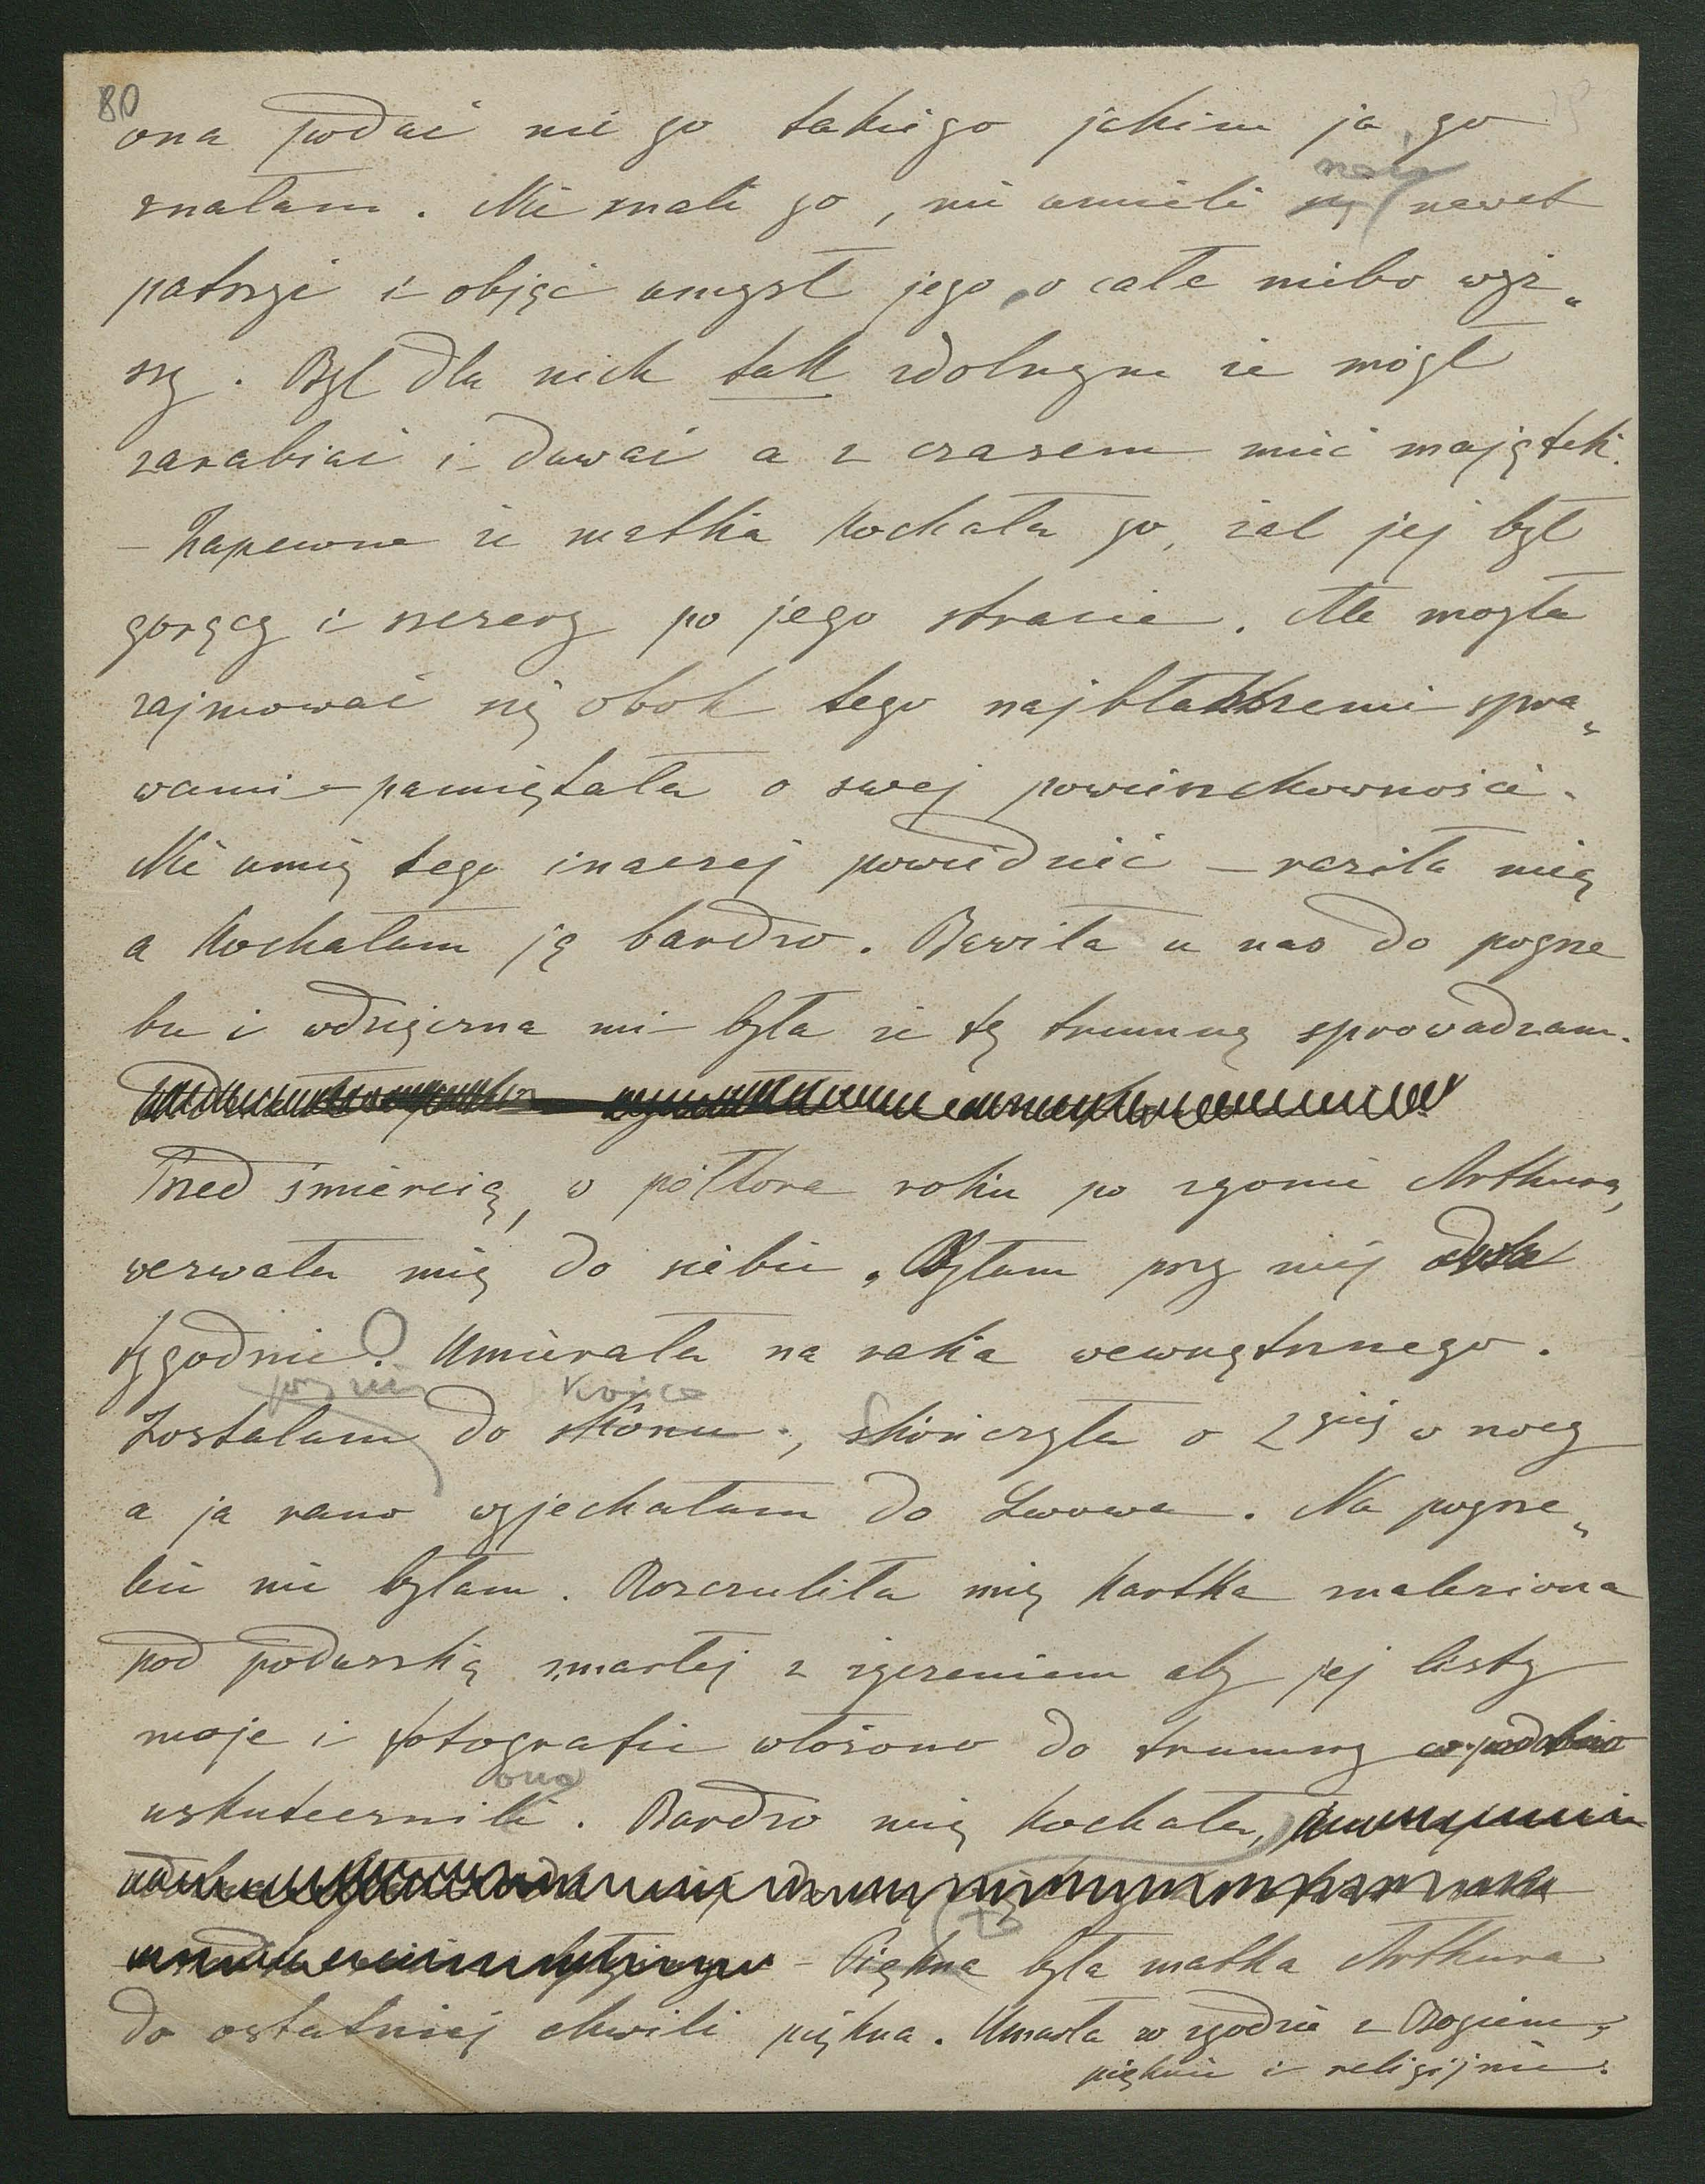 80
ona podać mi go takiego jakim ja go
znałam. Nie znali go, nie umieli nań nawet
patrzyć i objąć umysł jego o całe niebo wyż„
szy. Był dla nich tak zdolnym że mógł
zarabiać i dawać a z czasem mieć majątek.
— Zapewne że matka kochała go, żal jej był
gorący i szczery po jego stracie. Ale mogła
zajmować się obok tego najbłahszemi spra„
wami – pamiętała o swej powierzchowności.
Nie umię tego inaczej powiedzieć — raziła mię
a kochałam ją bardzo. Bawiła u nas do pogrze
bu i wdzięczna mi była że tę trumnę sprowadzam.
Przed śmiercią, w półtora roku po zgonie Arthura,
wezwała mię do siebie. Byłam przy niej dwa
tygodnie. Umierała na raka wewnętrznego.
przy niej końca
Zostałam do skonu., skończyła o 2giej w nocy
a ja rano wyjechałam do Lwowa. Na pogrze„
bie nie byłam. Rozczuliła mię kartka znaleziona
pod poduszką zmarłej z życzeniem aby jej listy
moje i fotografie włożono do trumny co podobno
ono
uskutecznili. Bardzo mię kochała,
– Piękna była matka Arthura
do ostatniej chwili piękna. Umarła w zgodzie z Bogiem,
pięknie i religijnie.